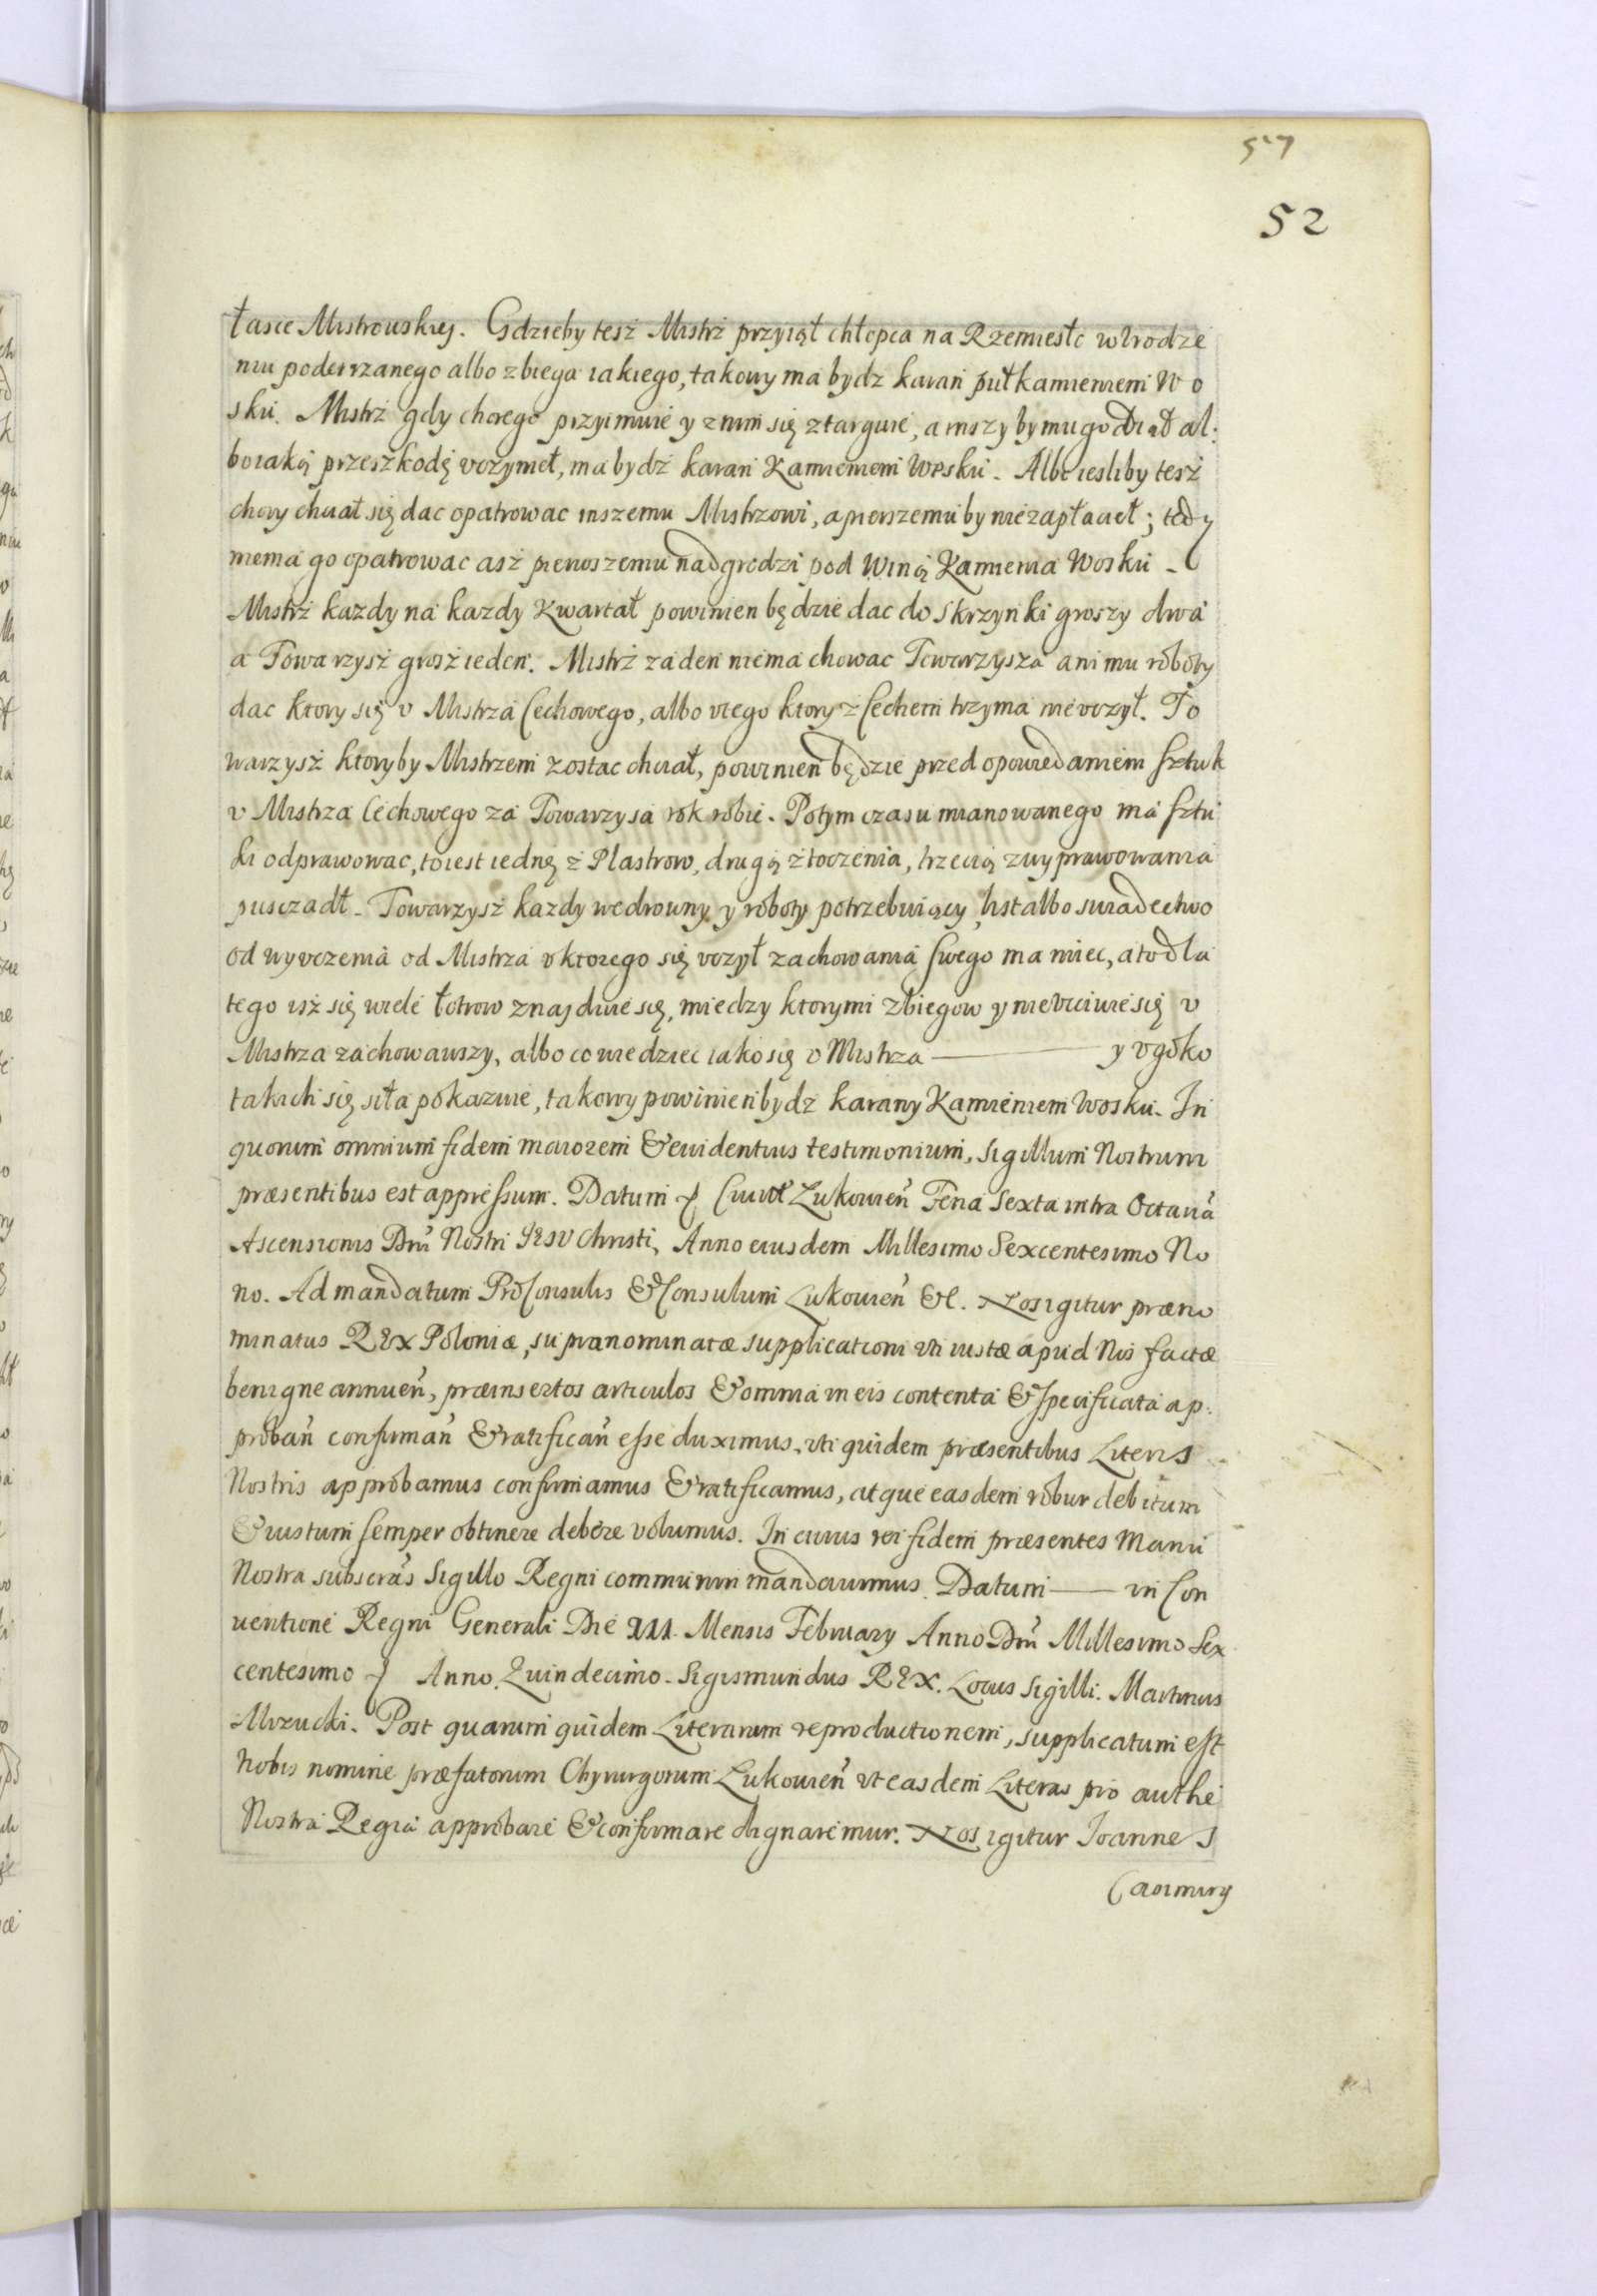 57
52
łasce Mistrowskiej. Gdzieby tesz Mistrz przyiął chłopca na Rzemiesło w Vrodze
niu podeirzanego albo zbiega iakiego, takowy ma bydz karan pułkamieniem Wo
sku. Mistrz gdy chorego przyimuie y z nim się ztarguie, a inszy by mu go odiął al:
bo iaką przeszkodę vczynieł, ma bydz karan Kamieniem Wosku. Albo iesliby tesz
chory chciał się dac opatrowac inszemu Mistrzowi, a pierszemu by nie zapłacieł; tedy
niema go opatrowac asz pierwszemu nadgrodzi pod Winą Kamienia Wosku
Mistrz kazdy na kazdy Kwartał powinien będzie dac do Skrzynki groszy dwa
a Towarzysz grosz ieden. Mistrz zaden niema chowac Towarzysza ani mu roboty
dac ktory się v Mistrza Cechowego, albo v tego ktory z Cechem trzyma nie vczył. To
warzysz ktoryby Mistrzem zostac chciał, powinien będzie przed opowiedaniem sztuk
v Mistrza Cechowego za Towarzysa rok robic. Potym czasu mianowanego ma sztu
ki odprawowac, to iest iednę z Plastrow, drugą z toczenia, trzecią z wyprawowania
pusczadł. Towarzysz kazdy wedrowny y roboty potrzebuiący, list albo swiadectwo
od wyvczenia od Mistrza v ktorego się vczył zachowania swego ma miec, a to dla
tego isz się wiele łotrow znajduie się, miedzy ktorymi zbiegow y nievcciwie się v
Mistrza zachowawszy, albo co wiedziec iako się v Mistrza —— y vgoko
takich się siła pokazuie, takowy powinien bydz karany Kamieniem Wosku. In
quorum omnium fidem maiorem & euidentius testimonium, Sigillum Nostrum
præsentibus est appressum. Datum Ciuit Lukouien Feria Sexta intra Octaua
Ascensionis Dni Nostri IESV Christi, Anno eiusdem Millesimo Sexcentesimo No
no. Ad mandatum ProConsulis & Consulum Lukouien &c. Nos igitur præno
minatus REX Poloniæ, supranominatæ supplicationi vti iustæ apud Nos factæ
benigne annuen, præinsertos articulos & omnia in eis contenta & specificata ap:
proban confirman & ratifican esse duximus, vti quidem præsentibus Literis
Nostris approbamus confirmamus & ratificamus, atque easdem robur debitum
& iustum semper obtinere debere volumus. In cuius rei fidem præsentes Manu
Nostra subscras Sigillo Regni communiri mandauimus. Datum —— in Con
uentione Regni Generali Die XII. Mensis February Anno Dni Millesimo Sex
centesimo Anno Quindecimo. Sigismundus REX. Locus Sigilli. Martinus
Mrzucki. Post quarum quidem Literarum reproductionem, supplicatum est
Nobis nomine præfatorum Chyrurgorum Lukouien vt easdem Literas pro authe
Nostra Regia approbare & confirmare dignaremur. Nos igitur Joannes
Casimirg